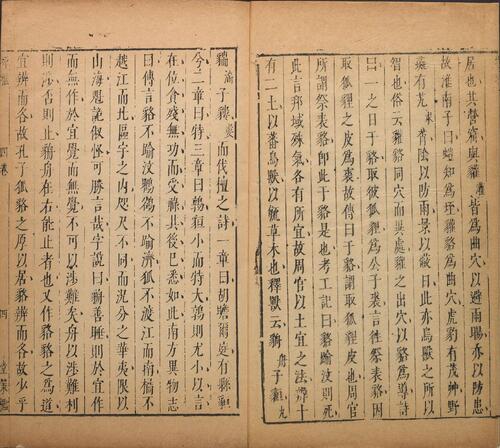 居也其營窟與貛皆為曲穴以避雨暘亦以防患
故淮南子曰蝗知為垤貛貉為曲穴虎豹有茂艸野
彘有艽莦陰以防雨景以蔽日此亦鳥獸之所以
智也俗云貛貉同穴而異處貛之出穴以貉為導詩
曰一之日于貉取彼狐狸為公子裘言往祭表貉因
取狐狸之皮為裘故傳曰于貉謂取狐狸皮也周官
所謂祭表貉即此于貉是也考工記曰貉踰汶則死
此言邦域殊氣各有所宜故周官以土宜之法辨十
有二土以蕃鳥獸以毓草木也釋獸云貈
貒子貗而伐檀之詩一章曰胡瞻爾庭有縣貆
兮二章曰特三章曰鶉貆小而特大鶉則尤小以言
在位貪殘無功而受祿其後巳悉如此南方異物志
曰傳言貉不踰汶鸜鵒不踰濟狐不渡江而南橘不
越江而北區宇之内咫尺不同而況分之華夷限以
山海鬼詭俶怪可勝言哉字說曰貈善睡則於宜作
而無作於宜覺而無覺不可以涉難矣舟以涉難利
則涉否則止貈舟在右能止者也又作貉貉之為道
宜辨而各故孔子狐貉之厚以居貉辨而各故少乎
四卷
四